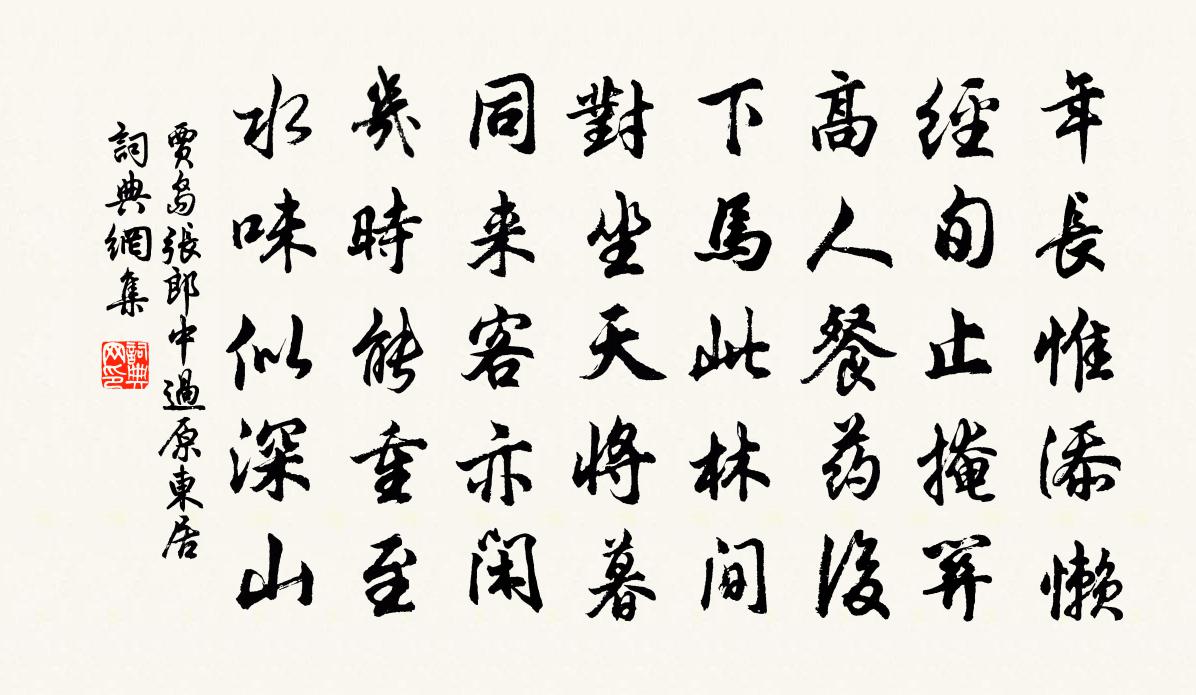 年長惟添懶
經旬止掩關
高人餐药後
下馬此林間
對坐天將暮
同来客亦閑
幾時能重至
水味似深山
賈島張郎中過原東居
詞典網集
詞典网印